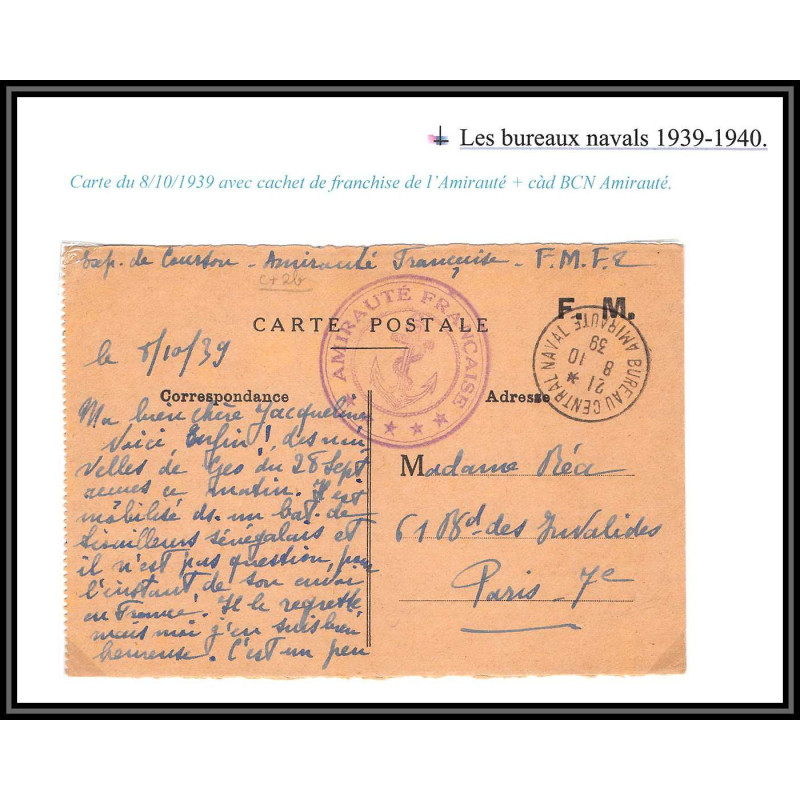 Les bureaux navals 1939-1940.
Carte du 8/10/1939 avec cachet de franchise de l'Amirauté + càd BCN Amirauté.
Exp. de Courson - Amirauté Française - F.M.F. 2
c+2b
F. M.
CARTE POSTALE
AMIRAUTÉ FRANÇAISE
BUREAU CENTRAL NAVAL
AMIRAUTÉ
21 *
8 10
39
le 8/10/39
Correspondance
Adresse
Ma bien chère Jacqueline
Voici Enfin! des nou
velles de Geo du 28 Sept
ce matin. Il est
mobilisé ds. un bat. de
tirailleurs sénégalais et
il n'est pas question, pour
l'instant de son envoi
en France. Il le regrette
mais moi j'en suis bien
heureuse. C'est un peu
Madame Réa
61 Bd. des Invalides
Paris - 7e